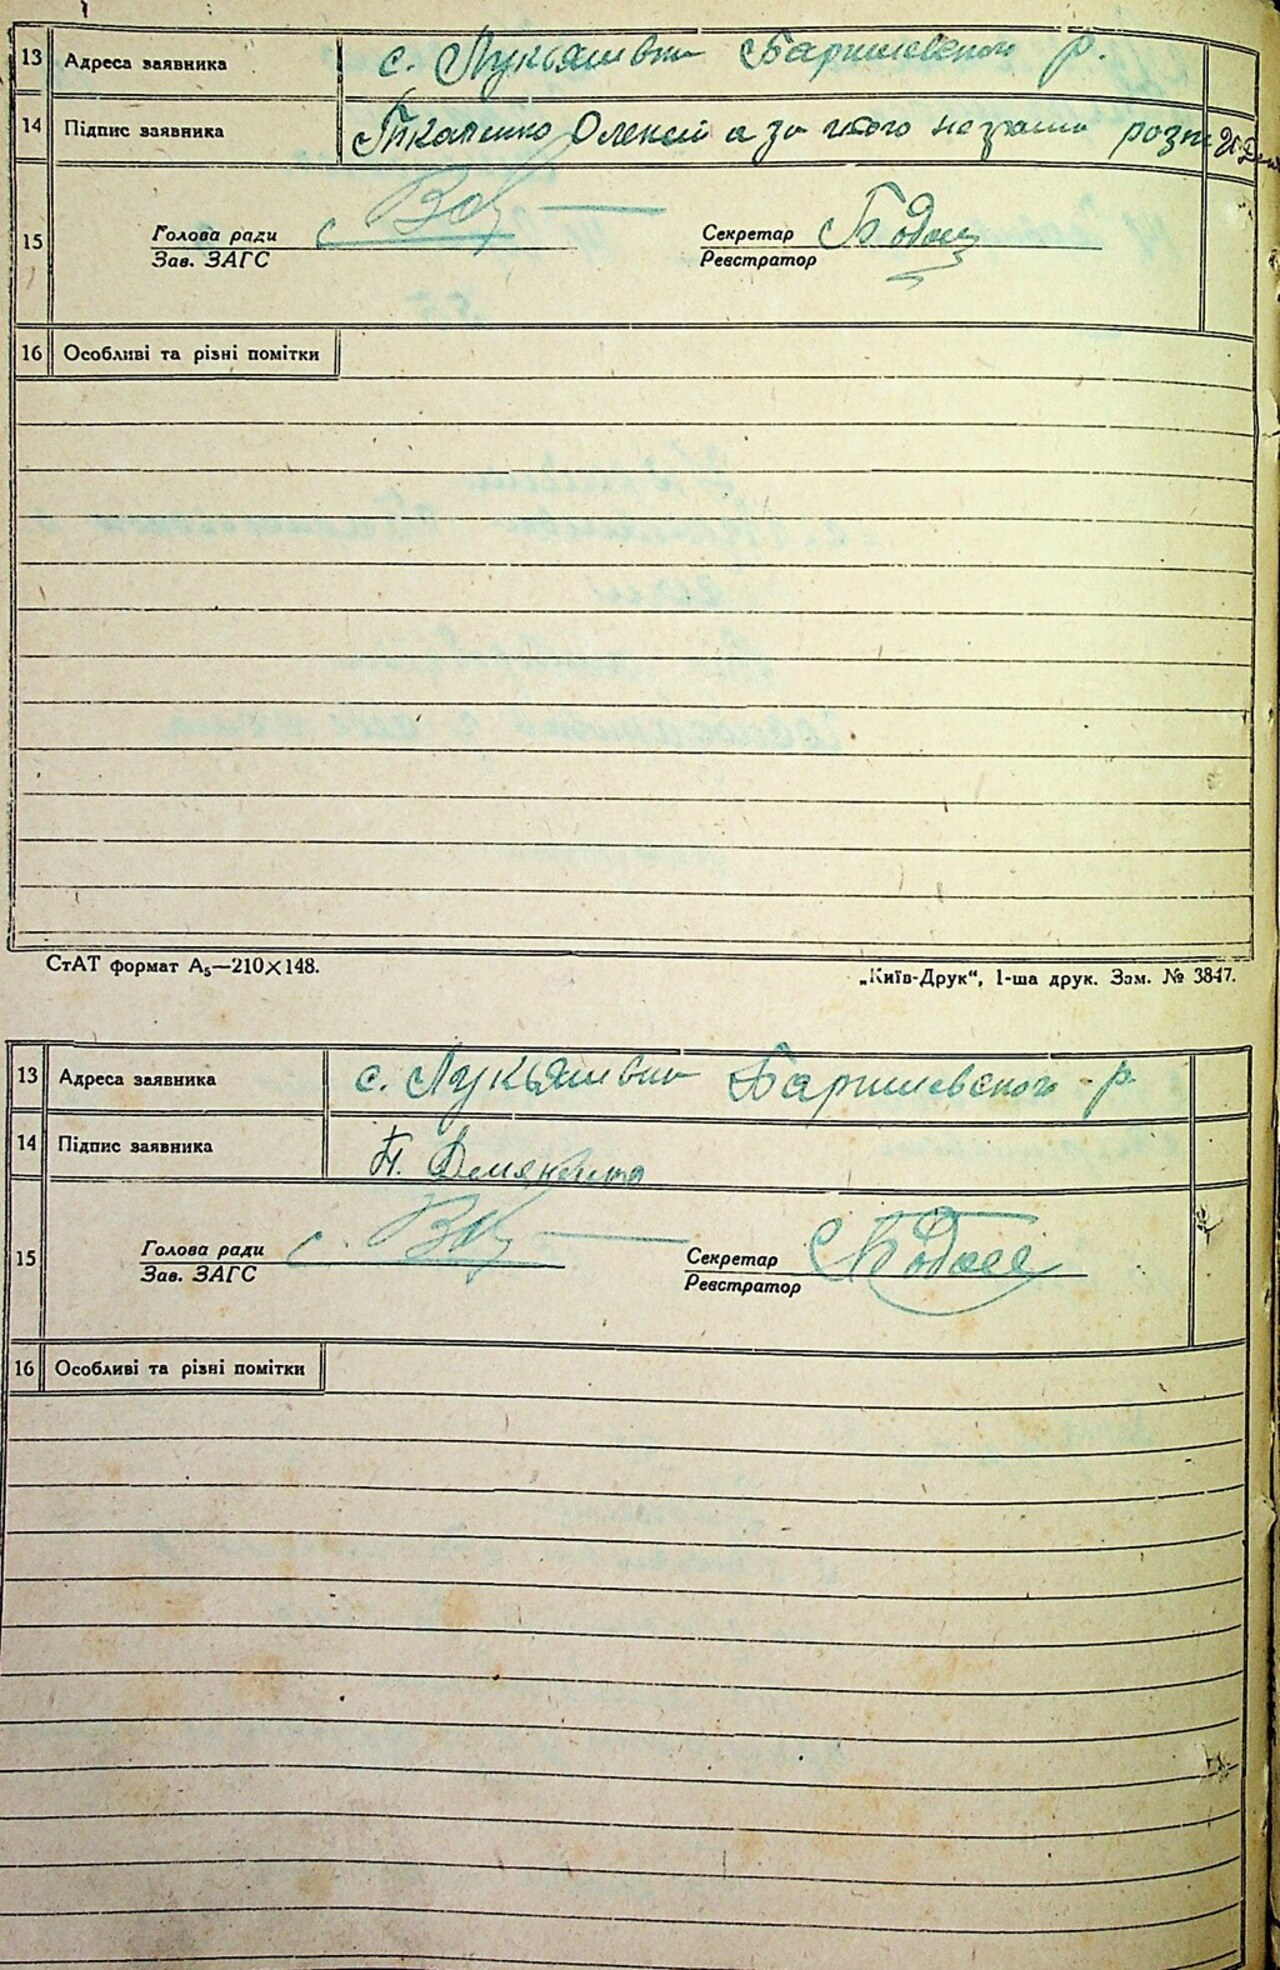 13 Адреса заявника с. Лукьянівка Баришевского р.
14 Підпис заявника Ткаленко Олексій а за його
15 Голова ради Секретар
Зав. ЗАГС Реєстратор
16 Особливі та різні помітки
СтАТ формат А₅—210×148. „Київ-Друк“, 1-ша друк. Зам. № 3847.
13 Адреса заявника с. Лукьянівка Баришевского р.
14 Підпис заявника П. Демяненко
15 Голова ради Секретар
Зав. ЗАГС Реєстратор
16 Особливі та різні помітки